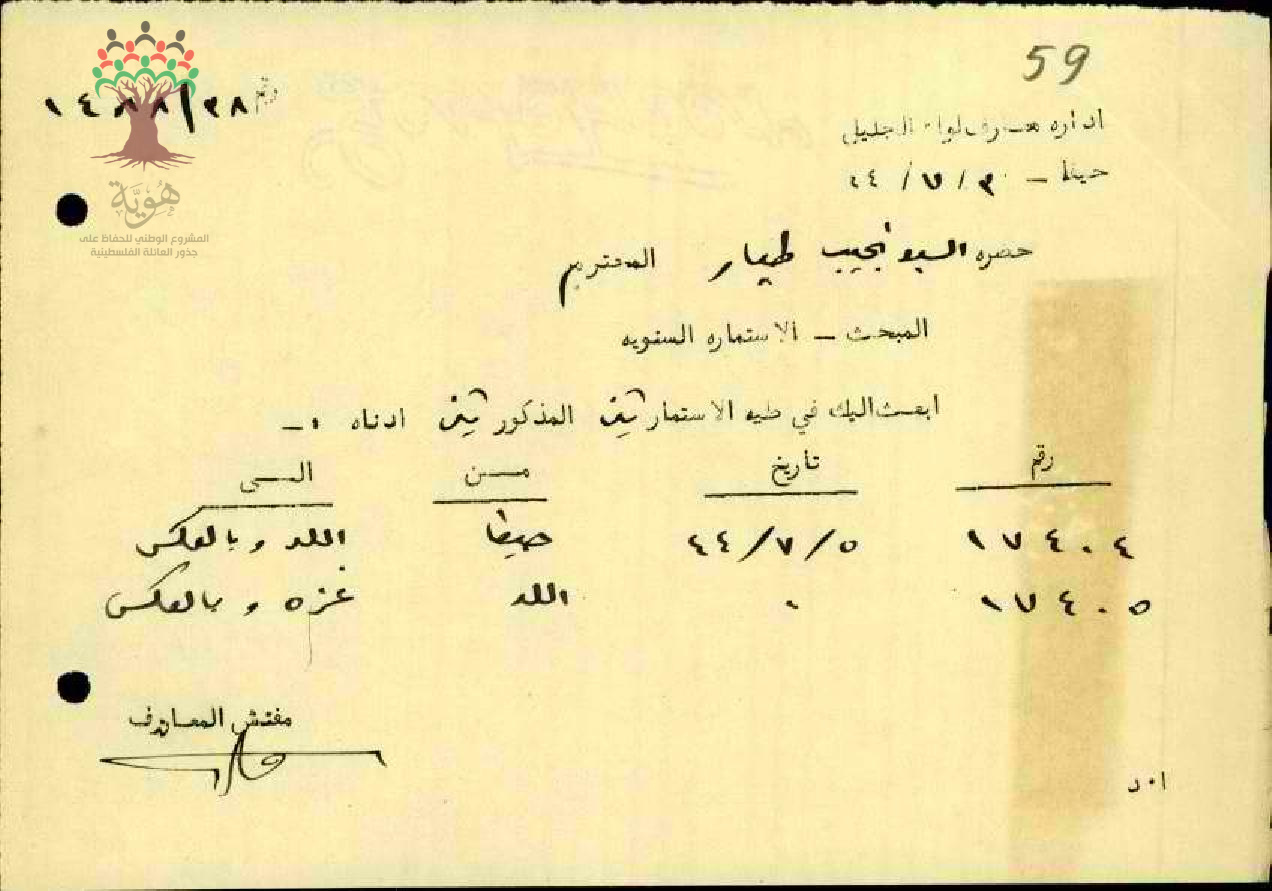 59
رقم ٢٨/
اداره معارف لواء الجليل
حيفا - ٤٤/٧/٣٠
هُوِيَّة
المشروع الوطني للحفاظ على
جذور العائلة الفلسطينية
حضره السيد نجيب طيار المحترم
المبحث - الاستماره السنويه
ابعث اليك في طيه الاستمارتين المذكورتين ادناه :-
رقم تاريخ من الى
١٧٤٠٤ ٤٤/٧/٥ حيفا اللد وبالعكس
١٧٤٠٥ اللد غزه وبالعكس
مفتش المعارف
ا٠د